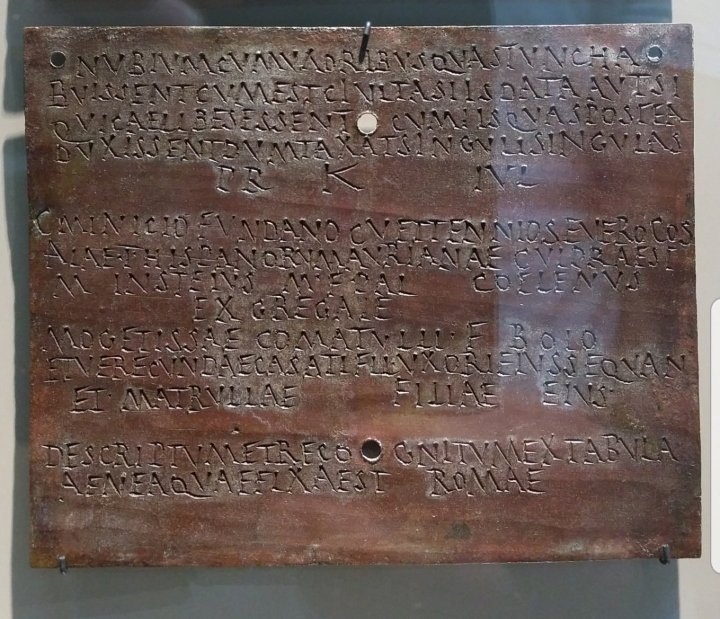 NVBIVMCVMVXORIBVSQVASTVNCHA
BVISSENTCVMESTCIVITASIISDATAAVTSI
QVICAELIBESESSENT CVMIISQVASPOSTEA
DVXISSENTDVMTAXATSINGVLISINGVLAS
PR K IVL
C MINICIO FVNDANO C VETTENNIO SEVERO COS
ALAE T HISPANORVM AVRIANAE CVI PRAEST
M INSTEIVS M F PAL COELENVS
EX GREGALE
MOGETISSAE COMATVLLI F BOIO
ET VERECVNDAE CASATI FIL VXORI EIVS SEQVAN
ET MATRVLLAE FILIAE EIVS
DESCRIPTVM ET RECO GNITVM EX TABVLA
AENEA QVAE FIXA EST ROMAE